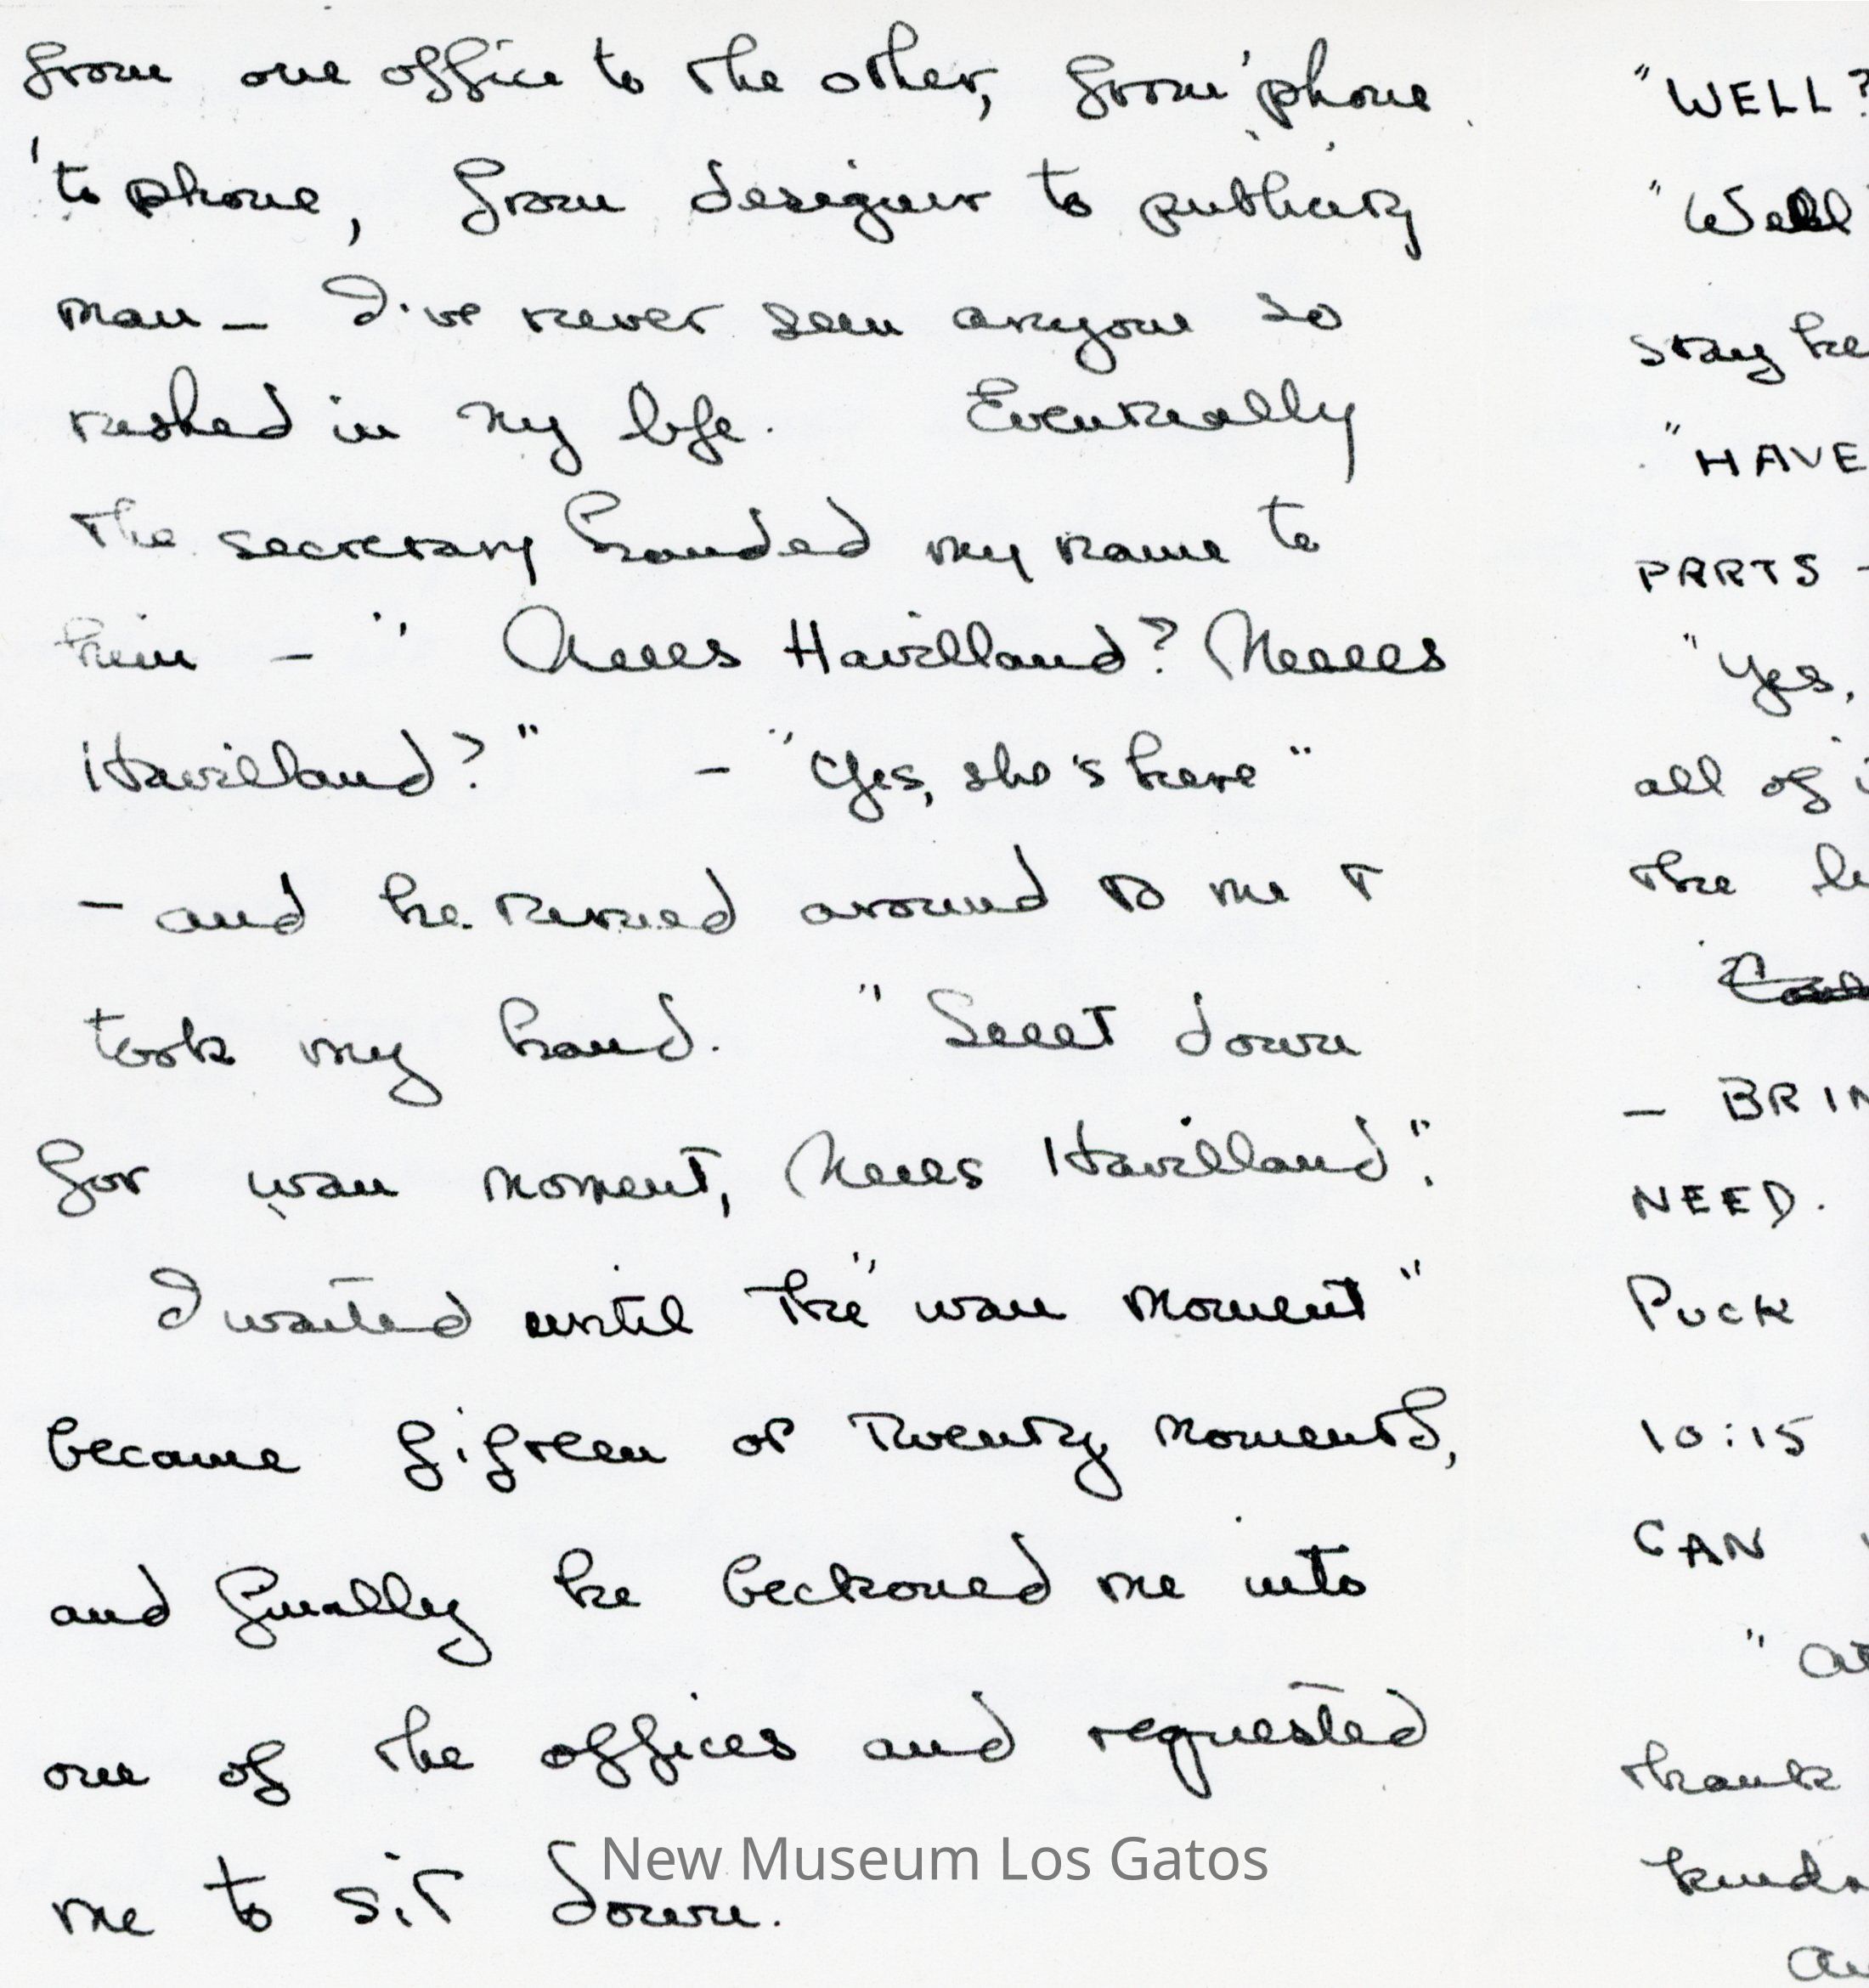 from one office to the other, from 'phone
to 'phone, from designer to publicity
man – I've never seen anyone so
rushed in my life. Eventually
the secretary handed my name to
him – " Havilland? Meees
Havilland?" – "Yes, she's here"
– and he turned around to me +
took my hand. "Seeet down
for wan moment, Meees Havilland".
I waited until the "wan moment"
became fifteen or twenty moments,
and finally he beckoned me into
one of the offices and requested
me to sit down.
"WELL?
"Well
stay he
"HAVE
PARTS –
"Yes,
all of i
the li
– BRIN
NEED.
PUCK
10:15
CAN
" at
thank
kinda
New Museum Los Gatos